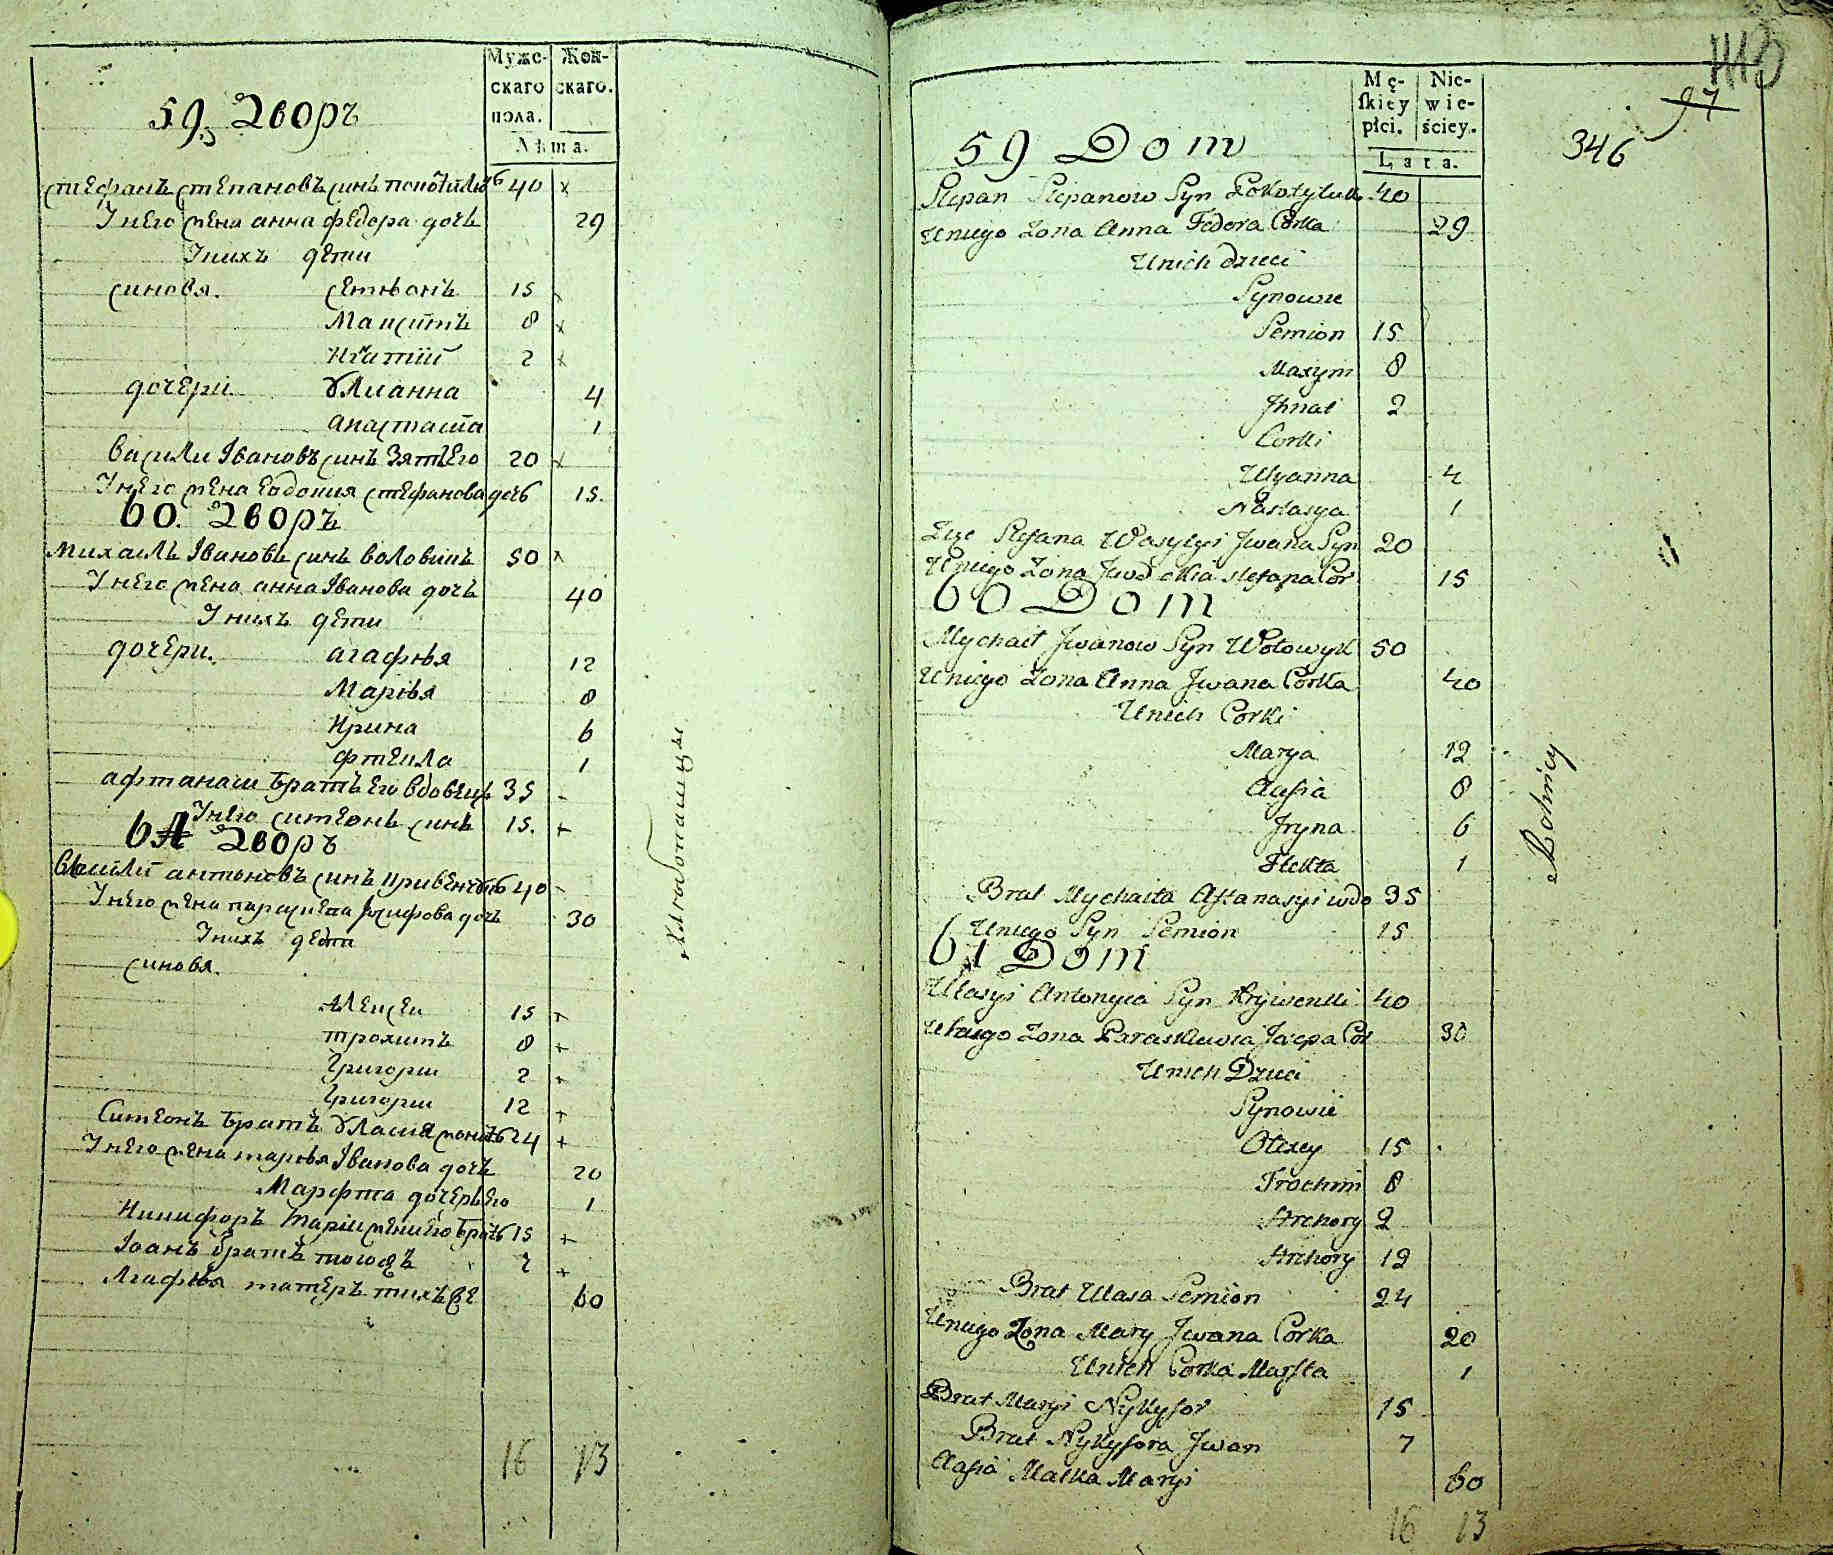 Мужескаго пола.
Жен-скаго.
Лѣта.
59. Дворъ
Стефанъ Степановъ синъ 40 х
Унего жена анна федора дочь 29
Унихъ дети
Синовя. Семионъ 15 х
Максимъ 8 х
Игнатий 2 х
дочери. Улианна 4
анастасия 1
Васили Івановъ синъ зять его 20 х
Унего жена евдокия стефанова дочь 15.
60. Дворъ
Михаилъ Івановъ синъ воловикъ 50 х
Унего жена анна Іванова дочь 40
Унихъ дети
дочери. агафия 12
Мария 8
Ирина 6
фтекла 1
афтанаси братъ его вдовецъ 35
Унего симеонъ синъ 15. х
61 Дворъ
антоновъ синъ 40
Унего жена параскева дочь 30
Унихъ дети
синовя.
Алексеи 15 х
Трохимъ 8 х
Григори 2 х
Григори 12 х
Симеонъ братъ Уласия 24 х
Унего жена мария Іванова дочь 20
Марфта дочерь его 1
Никифоръ братъ 15 х
Іоанъ братъ тогожъ 7 х
Агафия матерь 60
16 13
Męskiey płci.
Niewieściey.
Lata.
97
346
59 Dom
Stepan Stepanow Syn 40
Uniego Zona Anna Fedora Corka 29
Unich dzieci
Synowie
Semion 15
Maxym 8
Ihnat 2
Corki
Ulyanna 4
Nastasya 1
Zięc Stefana Wasylyi Jwana Syn 20
Uniego Zona Jwdokia Stefana Cor 15
60 Dom
Mychail Jwanow Syn Wołowyk 50
Uniego Zona Anna Jwana Corka 40
Unich Corki
Marya 12
Aafia 8
Jryna 6
Ftekła 1
Brat Mychaiła Aftanasyi wdo 35
Uniego Syn Semion 15
61 Dom
Ulasyi Antonyia Syn 40
Uniego Zona Paraskiewia Cor 30
Unich Dzieci
Synowie
Olexey 15
Trochim 8
Hrehory 2
Hrehory 12
Brat Ulasa Semion 24
Uniego Zona Mary Jwana Corka 20
Unich Corka Marfta 1
Brat Maryi Nykyfor 15
Brat Nykyfora Jwan 7
Aafia Matka Maryi 60
16 13
Rolnicy